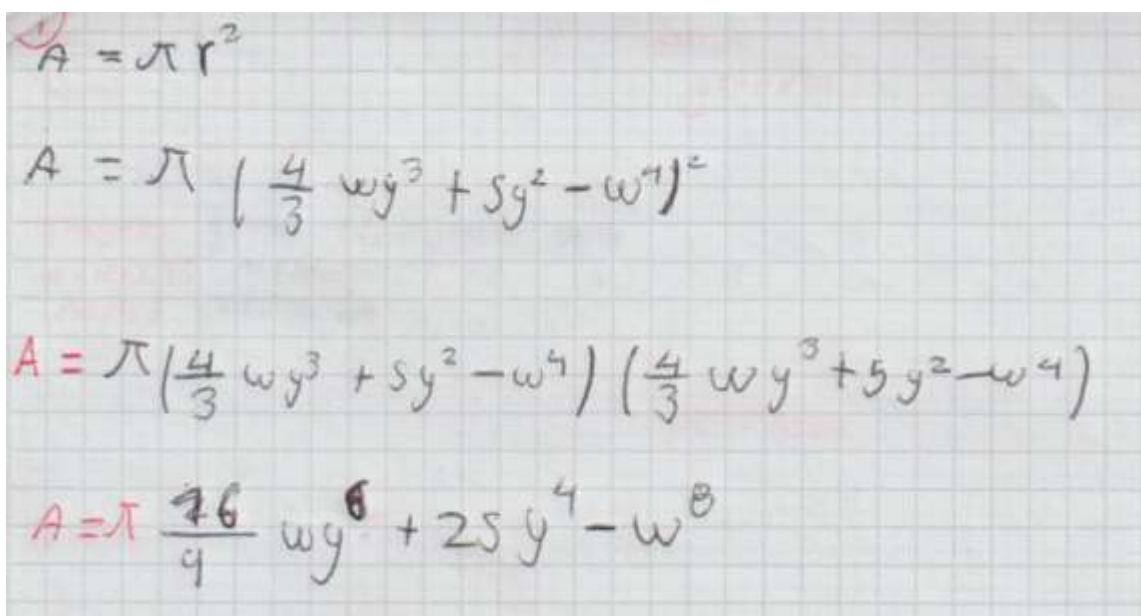 1
A = π r²
A = π (4/3 wy³ + 5y² - w⁴)²
A = π(4/3 wy³ + 5y² - w⁴) (4/3 wy³ + 5y² - w⁴)
A = π 16/9 wy⁶ + 25y⁴ - w⁸